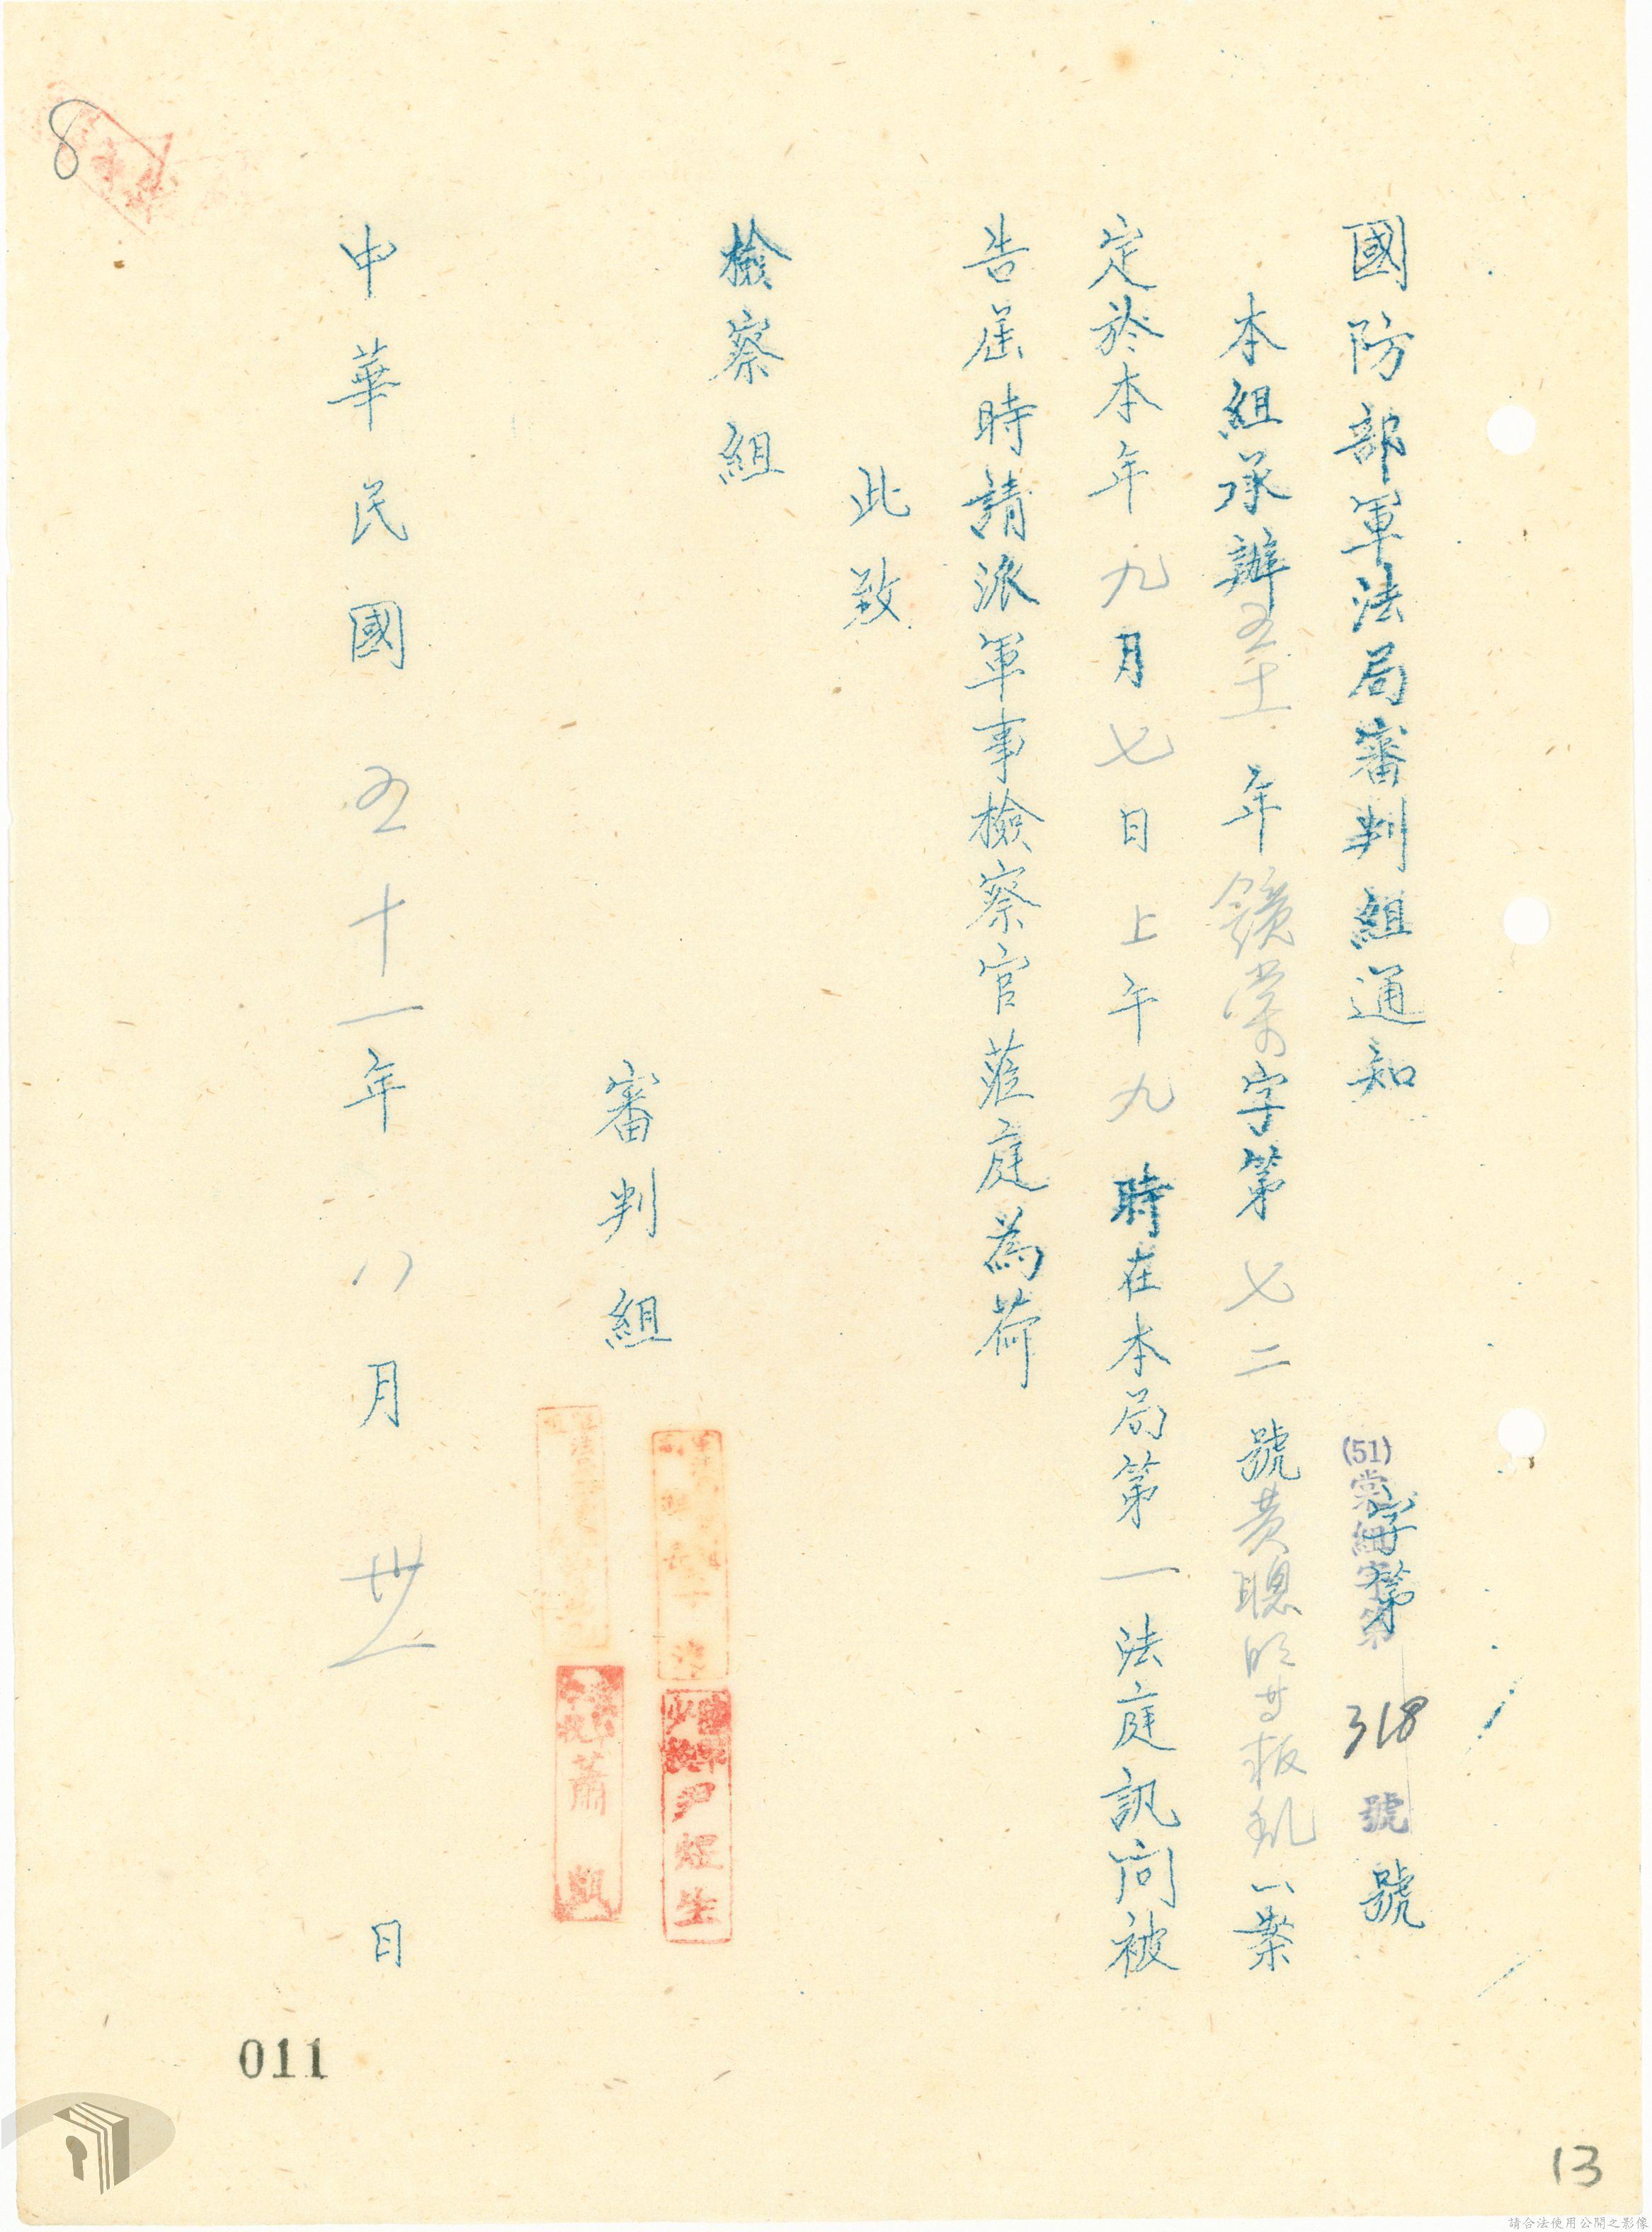 國防部軍法局審判組通知
(51)棠組字第 318 號
字第 號
本組承辦五十一年鐃棠字第七二號黃聰明等叛亂一案
定於本年九月七日上午九時在本局第一法庭訊問被
告屆時請派軍事檢察官蒞庭為荷
此致
檢察組
審判組
尹煜生
蕭凱
中華民國五十一年八月卅一日
8
011
13
請合法使用公開之影像